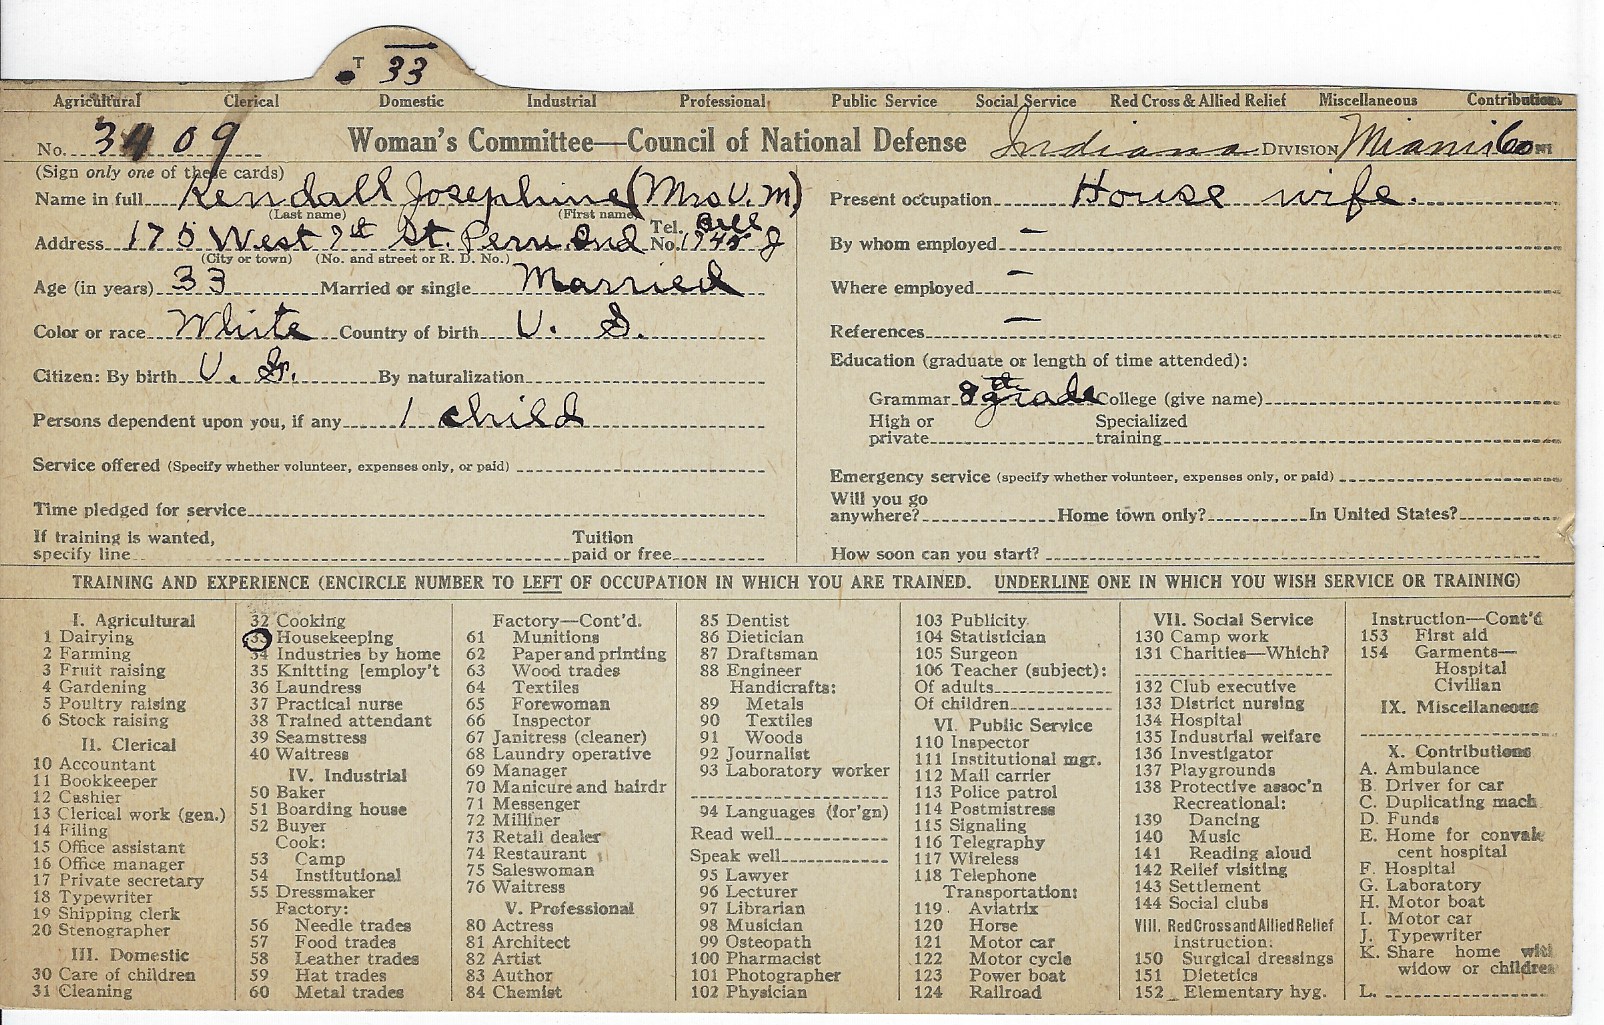 T 33
Agricultural Clerical Domestic Industrial Professional Public Service Social Service Red Cross & Allied Relief Miscellaneous Contributions
No. 3409 Woman's Committee—Council of National Defense Indiana DIVISION Miami Co
(Sign only one of these cards)
Name in full Kendall Josephine (Mrs V. M)
(Last name) (First name)
Address 175 West 7th St. Peru Ind Tel. No. Bell 1745 J
(City or town) (No. and street or R. D. No.)
Age (in years) 33 Married or single Married
Color or race White Country of birth U. S.
Citizen: By birth U. S. By naturalization
Persons dependent upon you, if any 1 child
Service offered (Specify whether volunteer, expenses only, or paid)
Time pledged for service
If training is wanted, specify line Tuition paid or free
Present occupation House wife.
By whom employed –
Where employed –
References –
Education (graduate or length of time attended):
Grammar 8th grade College (give name)
High or private Specialized training
Emergency service (specify whether volunteer, expenses only, or paid)
Will you go anywhere? Home town only? In United States?
How soon can you start?
TRAINING AND EXPERIENCE (ENCIRCLE NUMBER TO LEFT OF OCCUPATION IN WHICH YOU ARE TRAINED. UNDERLINE ONE IN WHICH YOU WISH SERVICE OR TRAINING)
I. Agricultural
1 Dairying
2 Farming
3 Fruit raising
4 Gardening
5 Poultry raising
6 Stock raising
II. Clerical
10 Accountant
11 Bookkeeper
12 Cashier
13 Clerical work (gen.)
14 Filing
15 Office assistant
16 Office manager
17 Private secretary
18 Typewriter
19 Shipping clerk
20 Stenographer
III. Domestic
30 Care of children
31 Cleaning
32 Cooking
33 Housekeeping
34 Industries by home
35 Knitting [employ't
36 Laundress
37 Practical nurse
38 Trained attendant
39 Seamstress
40 Waitress
IV. Industrial
50 Baker
51 Boarding house
52 Buyer
Cook:
53 Camp
54 Institutional
55 Dressmaker
Factory:
56 Needle trades
57 Food trades
58 Leather trades
59 Hat trades
60 Metal trades
Factory—Cont'd.
61 Munitions
62 Paper and printing
63 Wood trades
64 Textiles
65 Forewoman
66 Inspector
67 Janitress (cleaner)
68 Laundry operative
69 Manager
70 Manicure and hairdr
71 Messenger
72 Milliner
73 Retail dealer
74 Restaurant
75 Saleswoman
76 Waitress
V. Professional
80 Actress
81 Architect
82 Artist
83 Author
84 Chemist
85 Dentist
86 Dietician
87 Draftsman
88 Engineer
Handicrafts:
89 Metals
90 Textiles
91 Woods
92 Journalist
93 Laboratory worker
94 Languages (for'gn)
Read well
Speak well
95 Lawyer
96 Lecturer
97 Librarian
98 Musician
99 Osteopath
100 Pharmacist
101 Photographer
102 Physician
103 Publicity
104 Statistician
105 Surgeon
106 Teacher (subject):
Of adults
Of children
VI. Public Service
110 Inspector
111 Institutional mgr.
112 Mail carrier
113 Police patrol
114 Postmistress
115 Signaling
116 Telegraphy
117 Wireless
118 Telephone
Transportation:
119 Aviatrix
120 Horse
121 Motor car
122 Motor cycle
123 Power boat
124 Railroad
VII. Social Service
130 Camp work
131 Charities—Which?
132 Club executive
133 District nursing
134 Hospital
135 Industrial welfare
136 Investigator
137 Playgrounds
138 Protective assoc'n
Recreational:
139 Dancing
140 Music
141 Reading aloud
142 Relief visiting
143 Settlement
144 Social clubs
VIII. Red Cross and Allied Relief
Instruction:
150 Surgical dressings
151 Dietetics
152 Elementary hyg.
Instruction—Cont'd
153 First aid
154 Garments—
Hospital
Civilian
IX. Miscellaneous
X. Contributions
A. Ambulance
B. Driver for car
C. Duplicating mach
D. Funds
E. Home for convale
cent hospital
F. Hospital
G. Laboratory
H. Motor boat
I. Motor car
J. Typewriter
K. Share home with
widow or children
L.